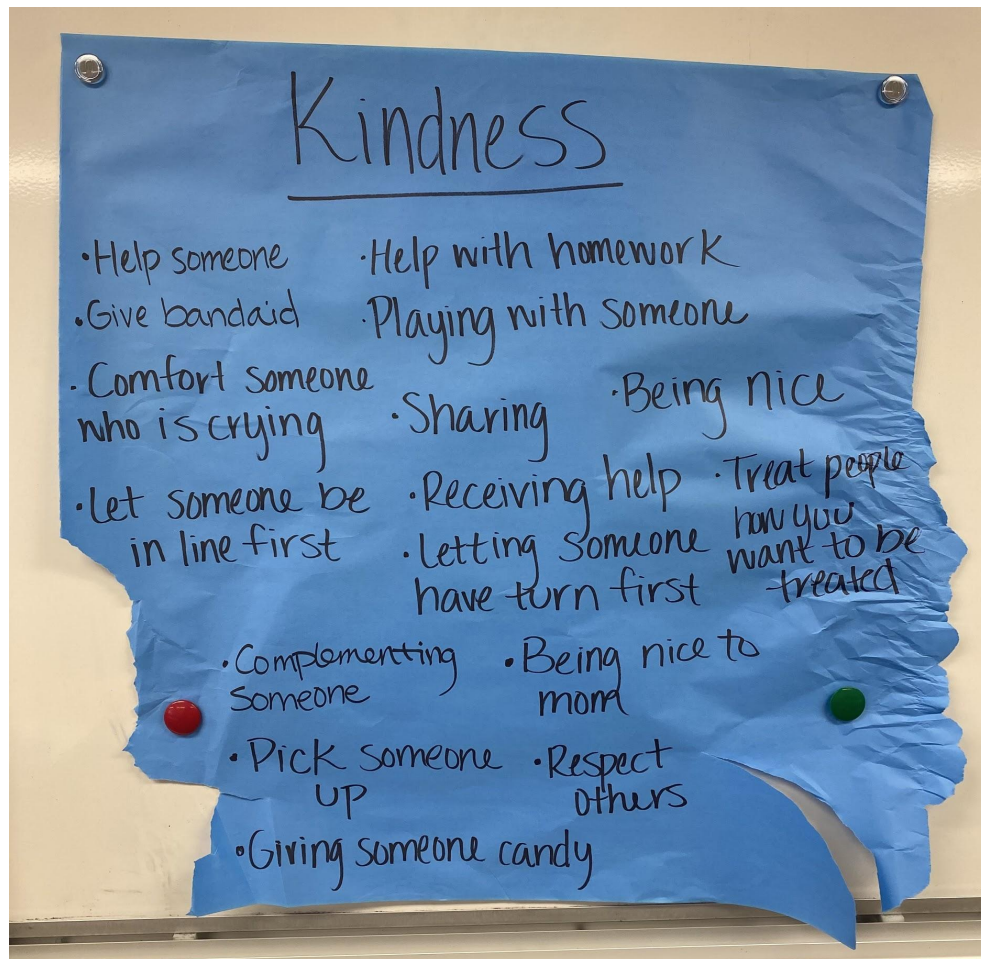 Kindness
·Help someone
·Give bandaid
·Comfort someone
who is crying
·Let someone be
in line first
·Help with homework
·Playing with someone
·Sharing
·Being nice
·Receiving help
·Letting someone
have turn first
·Treat people
how you
want to be
treated
·Complementing
someone
·Being nice to
mom
·Pick someone
up
·Respect
others
·Giving someone candy